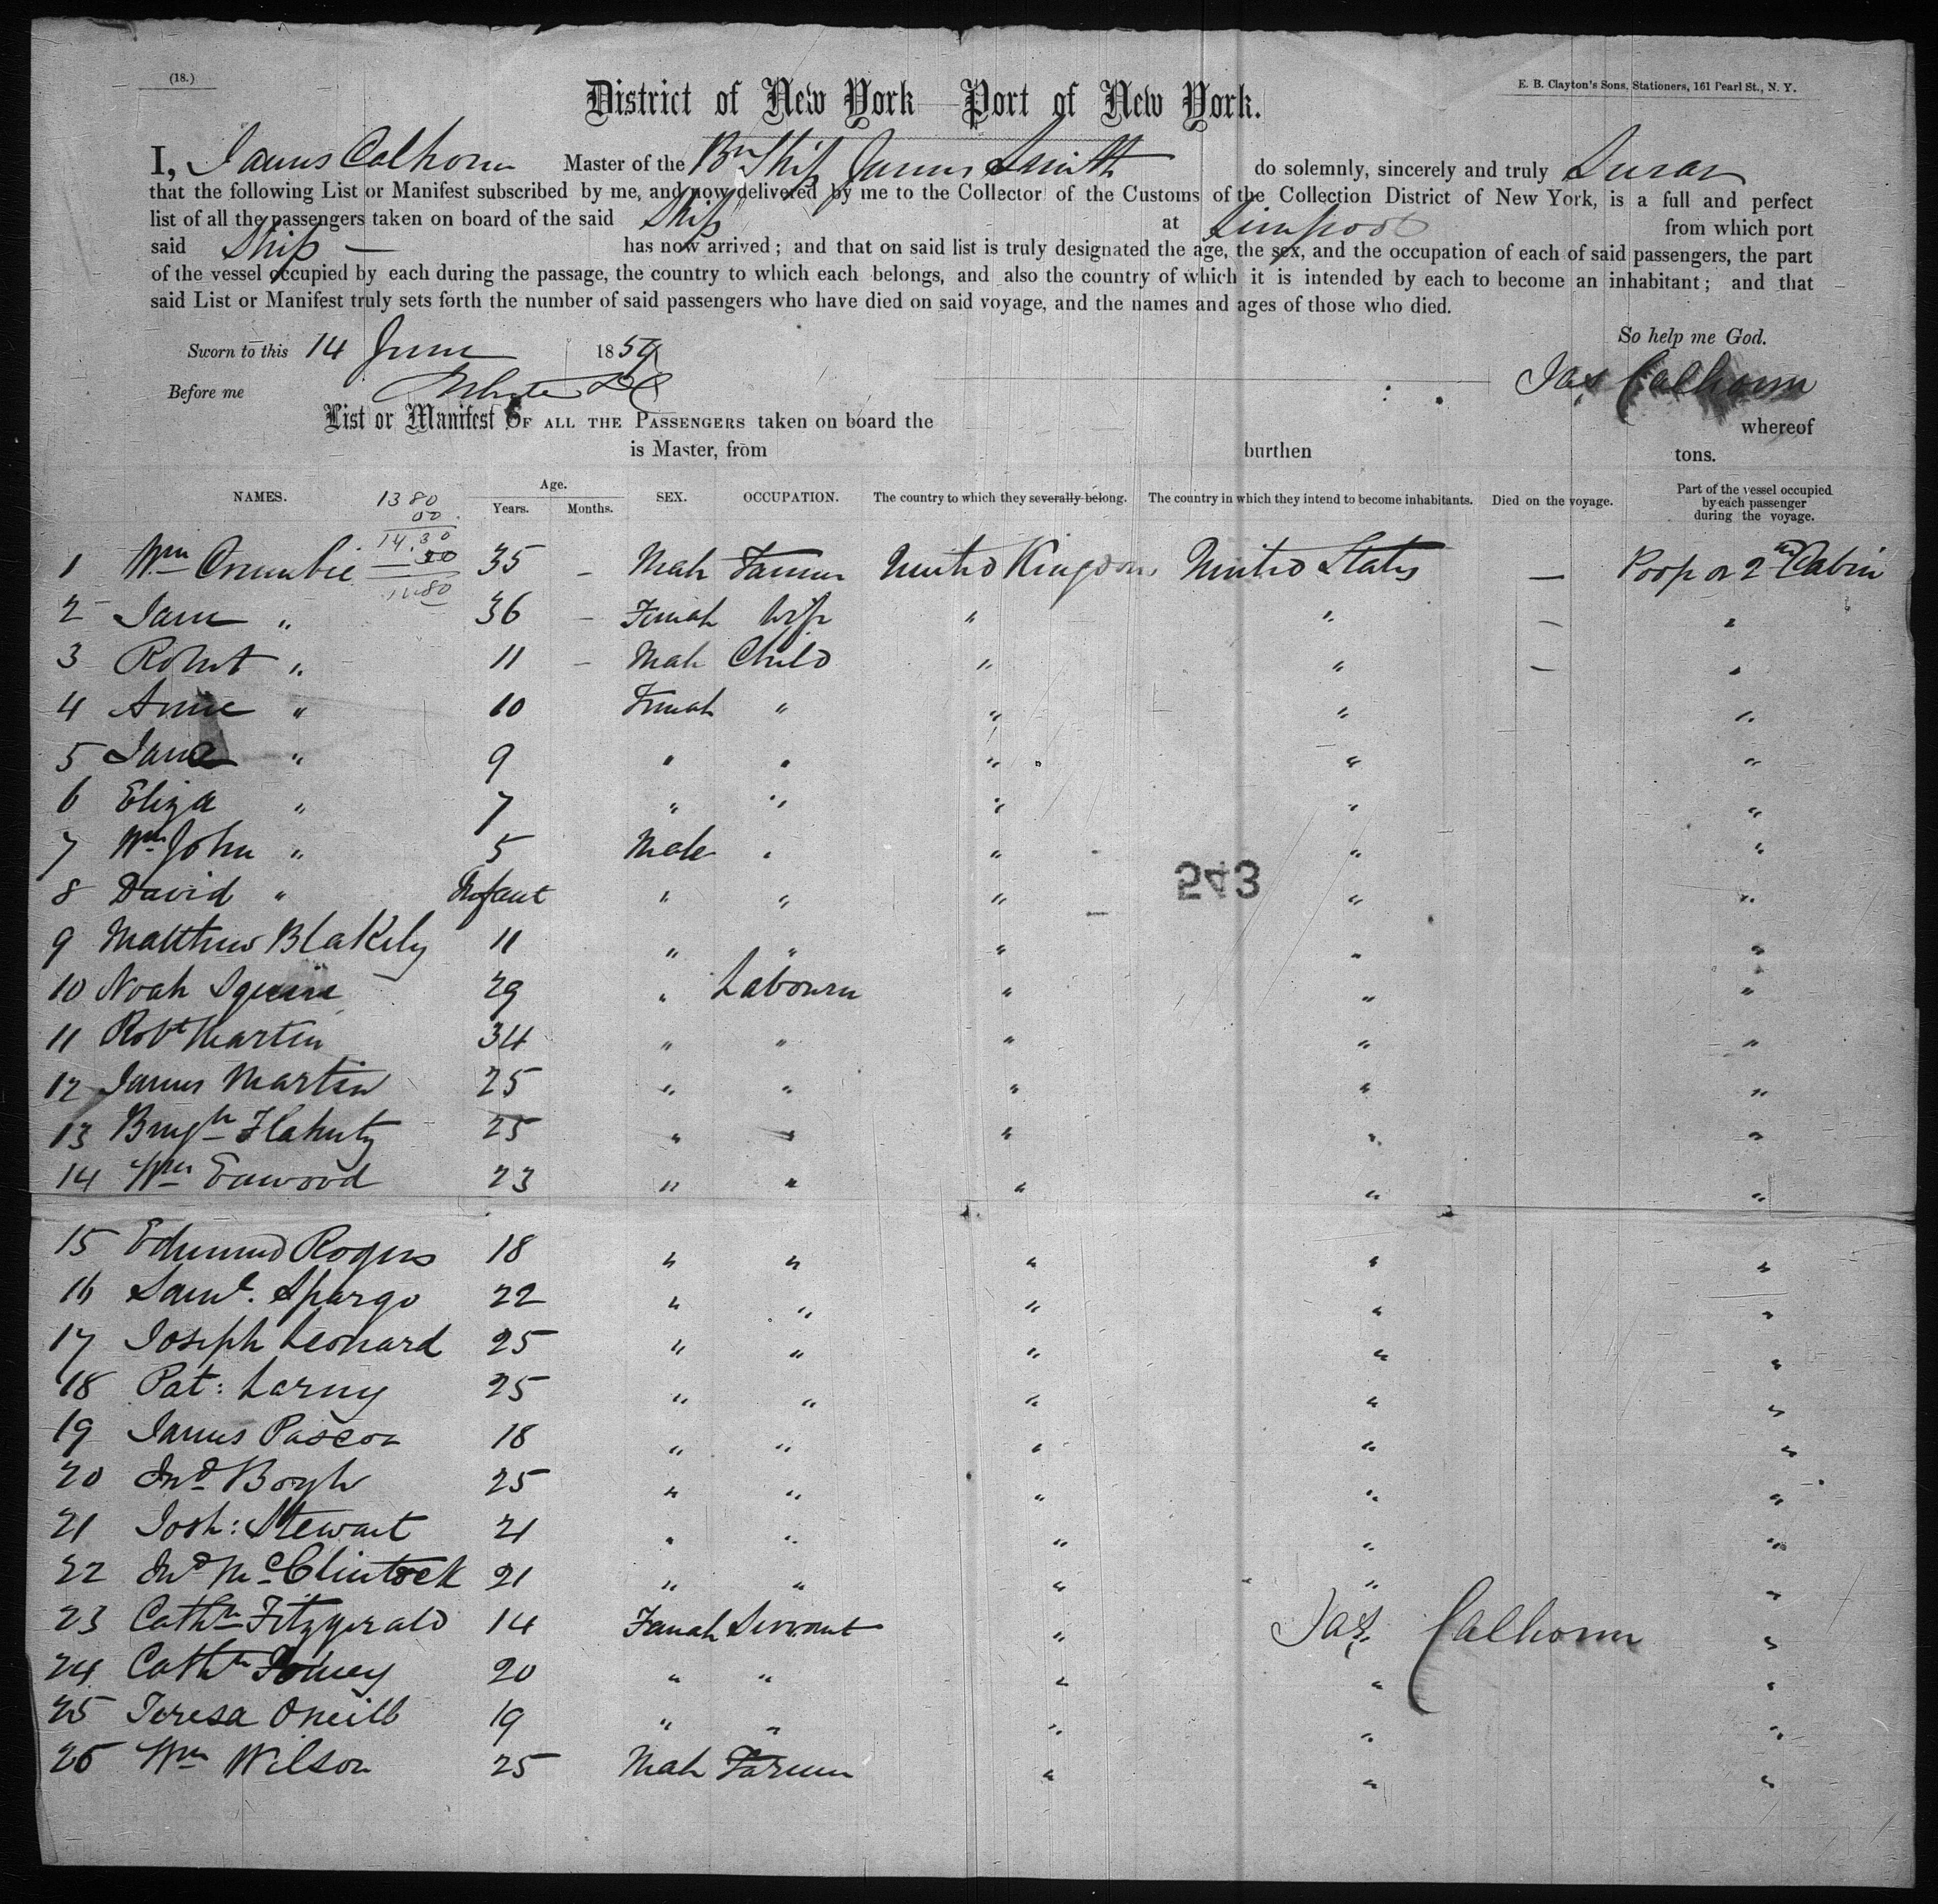 (18.)
E. B. Clayton's Sons, Stationers, 161 Pearl St., N. Y.
District of New York—Port of New York.
I, James Calhoun Master of the Br Ship James Smith do solemnly, sincerely and truly Swear
that the following List or Manifest subscribed by me, and now delivered by me to the Collector of the Customs of the Collection District of New York, is a full and perfect
list of all the passengers taken on board of the said Ship at Liverpool from which port
said Ship — has now arrived; and that on said list is truly designated the age, the sex, and the occupation of each of said passengers, the part
of the vessel occupied by each during the passage, the country to which each belongs, and also the country of which it is intended by each to become an inhabitant; and that
said List or Manifest truly sets forth the number of said passengers who have died on said voyage, and the names and ages of those who died.
So help me God.
Sworn to this 14 June 1859
Jas Calhoun
Before me
List or Manifest OF ALL THE PASSENGERS taken on board the whereof
is Master, from burthen tons.
NAMES. Age. Years. Months. SEX. OCCUPATION. The country to which they severally belong. The country in which they intend to become inhabitants. Died on the voyage. Part of the vessel occupied by each passenger during the voyage.
1380
00
14.30
50
1480
1 Wm Crumbie 35 – Male Farmer United Kingdom United States — Poop or 2nd Cabin
2 Jane " 36 – Female Wife " " – "
3 Robert " 11 – Male Child " " – "
4 Anne " 10 Female " " " "
5 Jane " 9 " " " " "
6 Eliza " 7 " " " " "
7 Wm John " 5 Male " " " "
8 David " Infant " " " " "
543
9 Matthew Blakely 11 " " " " "
10 Noah Squire 29 " Labourer " " "
11 Robt Martin 34 " " " " "
12 James Martin 25 " " " " "
13 Flaherty 25 " " " " "
14 Wm 23 " " " " "
15 Edmund Rogers 18 " " " " "
16 Saml. Spargo 22 " " " " "
17 Joseph Leonard 25 " " " " "
18 Pat: Larney 25 " " " " "
19 James Pascoe 18 " " " " "
20 Jno Boyle 25 " " " " "
21 Josh: Stewart 21 " " " " "
22 Jno McClintock 21 " " " " "
23 Cathn Fitzgerald 14 Female Servant " " "
Jas Calhoun
24 Cathn 20 " " " " "
25 Teresa Oneill 19 " " " " "
26 Wm Wilson 25 Male Farmer " " "